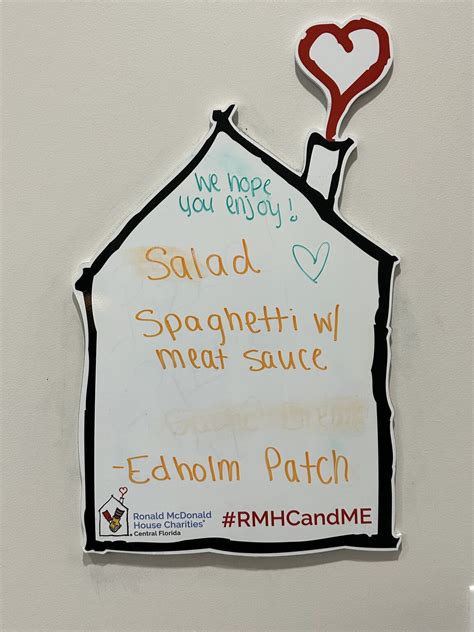 We hope
you enjoy!
Salad
Spaghetti w/
meat sauce
-Edholm Patch
Ronald McDonald
House Charities®
Central Florida
#RMHCandME